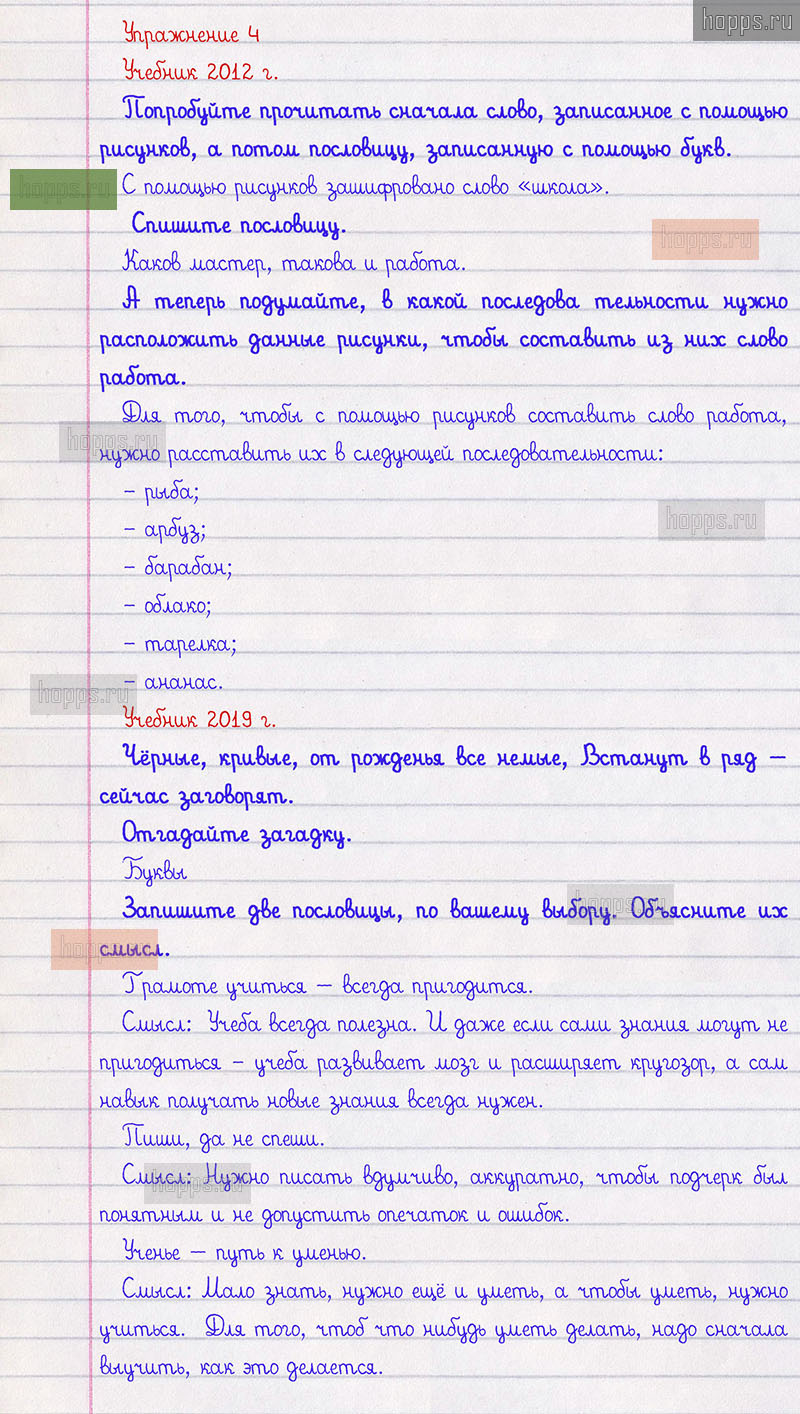 hopps.ru
Упражнение 4
Учебник 2012 г.
Попробуйте прочитать сначала слово, записанное с помощью
рисунков, а потом пословицу, записанную с помощью букв.
hopps.ru
С помощью рисунков зашифровано слово «школа».
Спишите пословицу.
hopps.ru
Каков мастер, такова и работа.
А теперь подумайте, в какой последова тельности нужно
расположить данные рисунки, чтобы составить из них слово
работа.
Для того, чтобы с помощью рисунков составить слово работа,
hopps.ru
нужно расставить их в следующей последовательности:
– рыба;
hopps.ru
– арбуз;
– барабан;
– облако;
– тарелка;
– ананас.
hopps.ru
Учебник 2019 г.
Чёрные, кривые, от рожденья все немые, Встанут в ряд —
сейчас заговорят.
Отгадайте загадку.
Буквы
hopps.ru
Запишите две пословицы, по вашему выбору. Объясните их
смысл.
hopps.ru
Грамоте учиться — всегда пригодится.
Смысл: Учеба всегда полезна. И даже если сами знания могут не
пригодиться – учеба развивает мозг и расширяет кругозор, а сам
навык получать новые знания всегда нужен.
Пиши, да не спеши.
Смысл: Нужно писать вдумчиво, аккуратно, чтобы подчерк был
hopps.ru
понятным и не допустить опечаток и ошибок.
Ученье — путь к уменью.
Смысл: Мало знать, нужно ещё и уметь, а чтобы уметь, нужно
учиться. Для того, чтоб что нибудь уметь делать, надо сначала
выучить, как это делается.